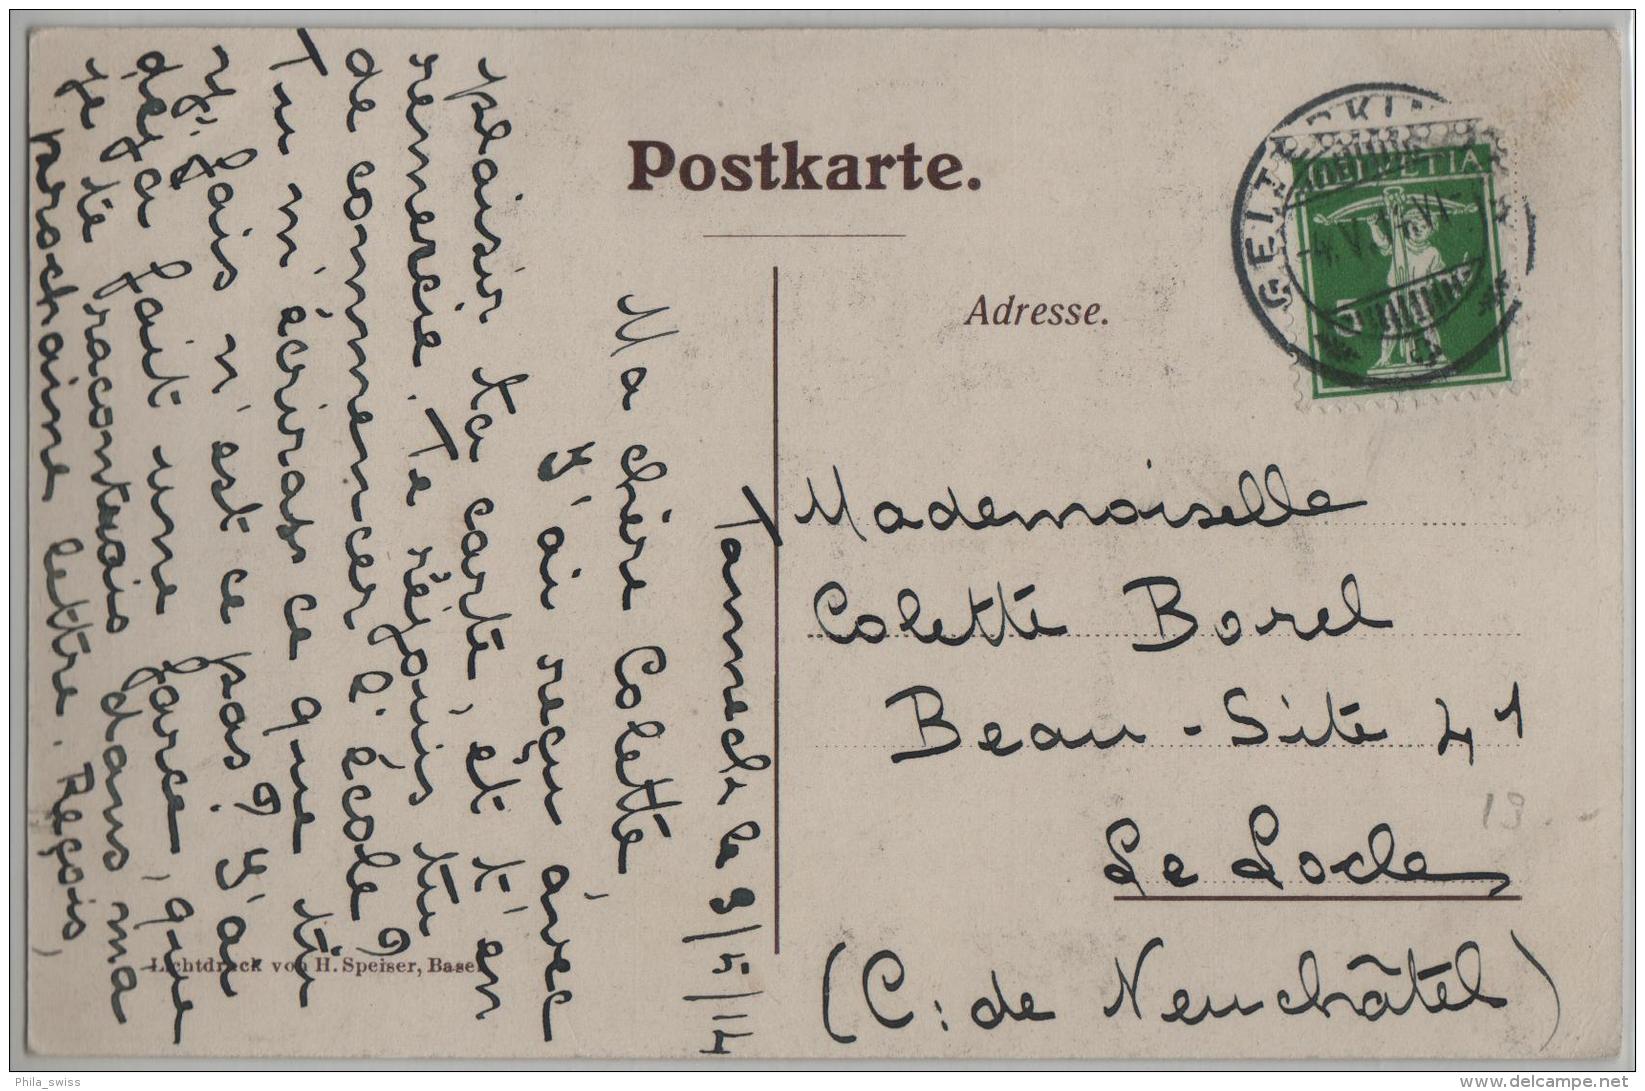 Postkarte.
Adresse.
HELVETIA
5
GELTERKINDEN
-4.V.14.VI-
Mademoiselle
Colette Borel
Beau-Site 41
Le Locle
(C: de Neuchâtel)
19
le 3/5/14
Ma chère Colette
J'ai reçu avec
plaisir ta carte, et t'en
remercie. Te réjouis tu
de commencer l'école?
Tu m'écriras ce que tu
y fais n'est ce pas? J'ai
déjà fait une farce, que
je te raconterais dans ma
prochaine lettre. Reçois,
Lichtdruck von H. Speiser, Basel
Phila_swiss
www.delcampe.net